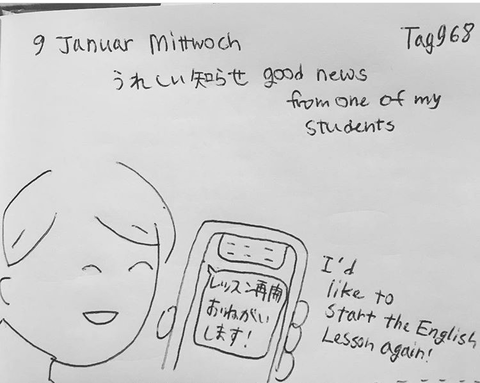 9 Januar Mittwoch
Tag968
うれしい知らせ good news
from one of my
students
レッスン再開
おねがい
します!
I'd
like to
start the English
Lesson again!